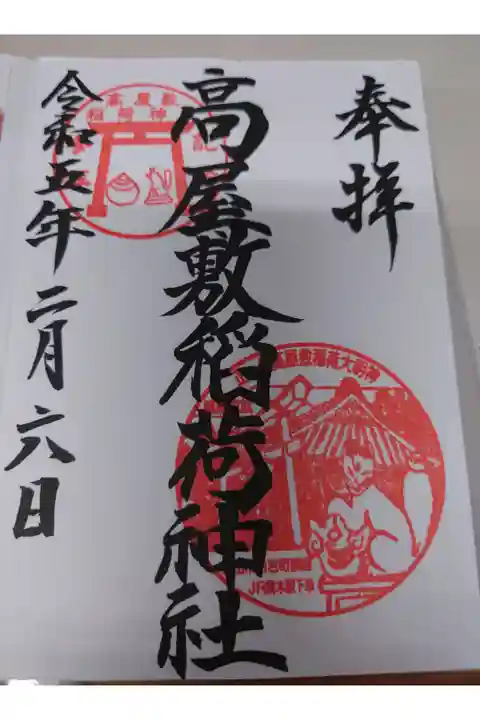 奉拝
高屋敷稲荷神社
令和五年二月六日
高屋敷
稲荷神
高屋敷稲荷大明神